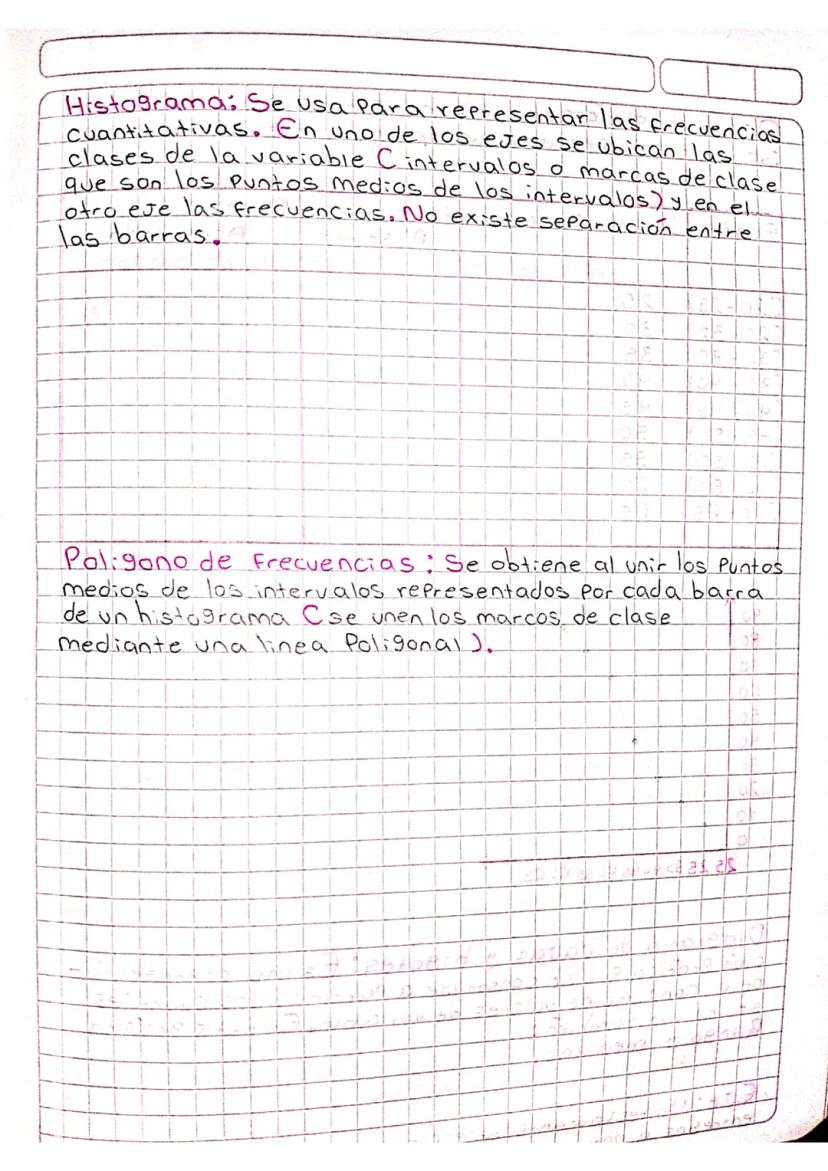 Histograma: Se usa para representar las frecuencias
cuantitativas. En uno de los ejes se ubican las
clases de la variable C intervalos o marcas de clase
que son los puntos medios de los intervalos) y en el
otro eje las frecuencias. No existe separación entre
las barras.
Poligono de Frecuencias: Se obtiene al unir los Puntos
medios de los intervalos representados por cada barra
de un histograma C se unen los marcos de clase
mediante una linea Poligonal).